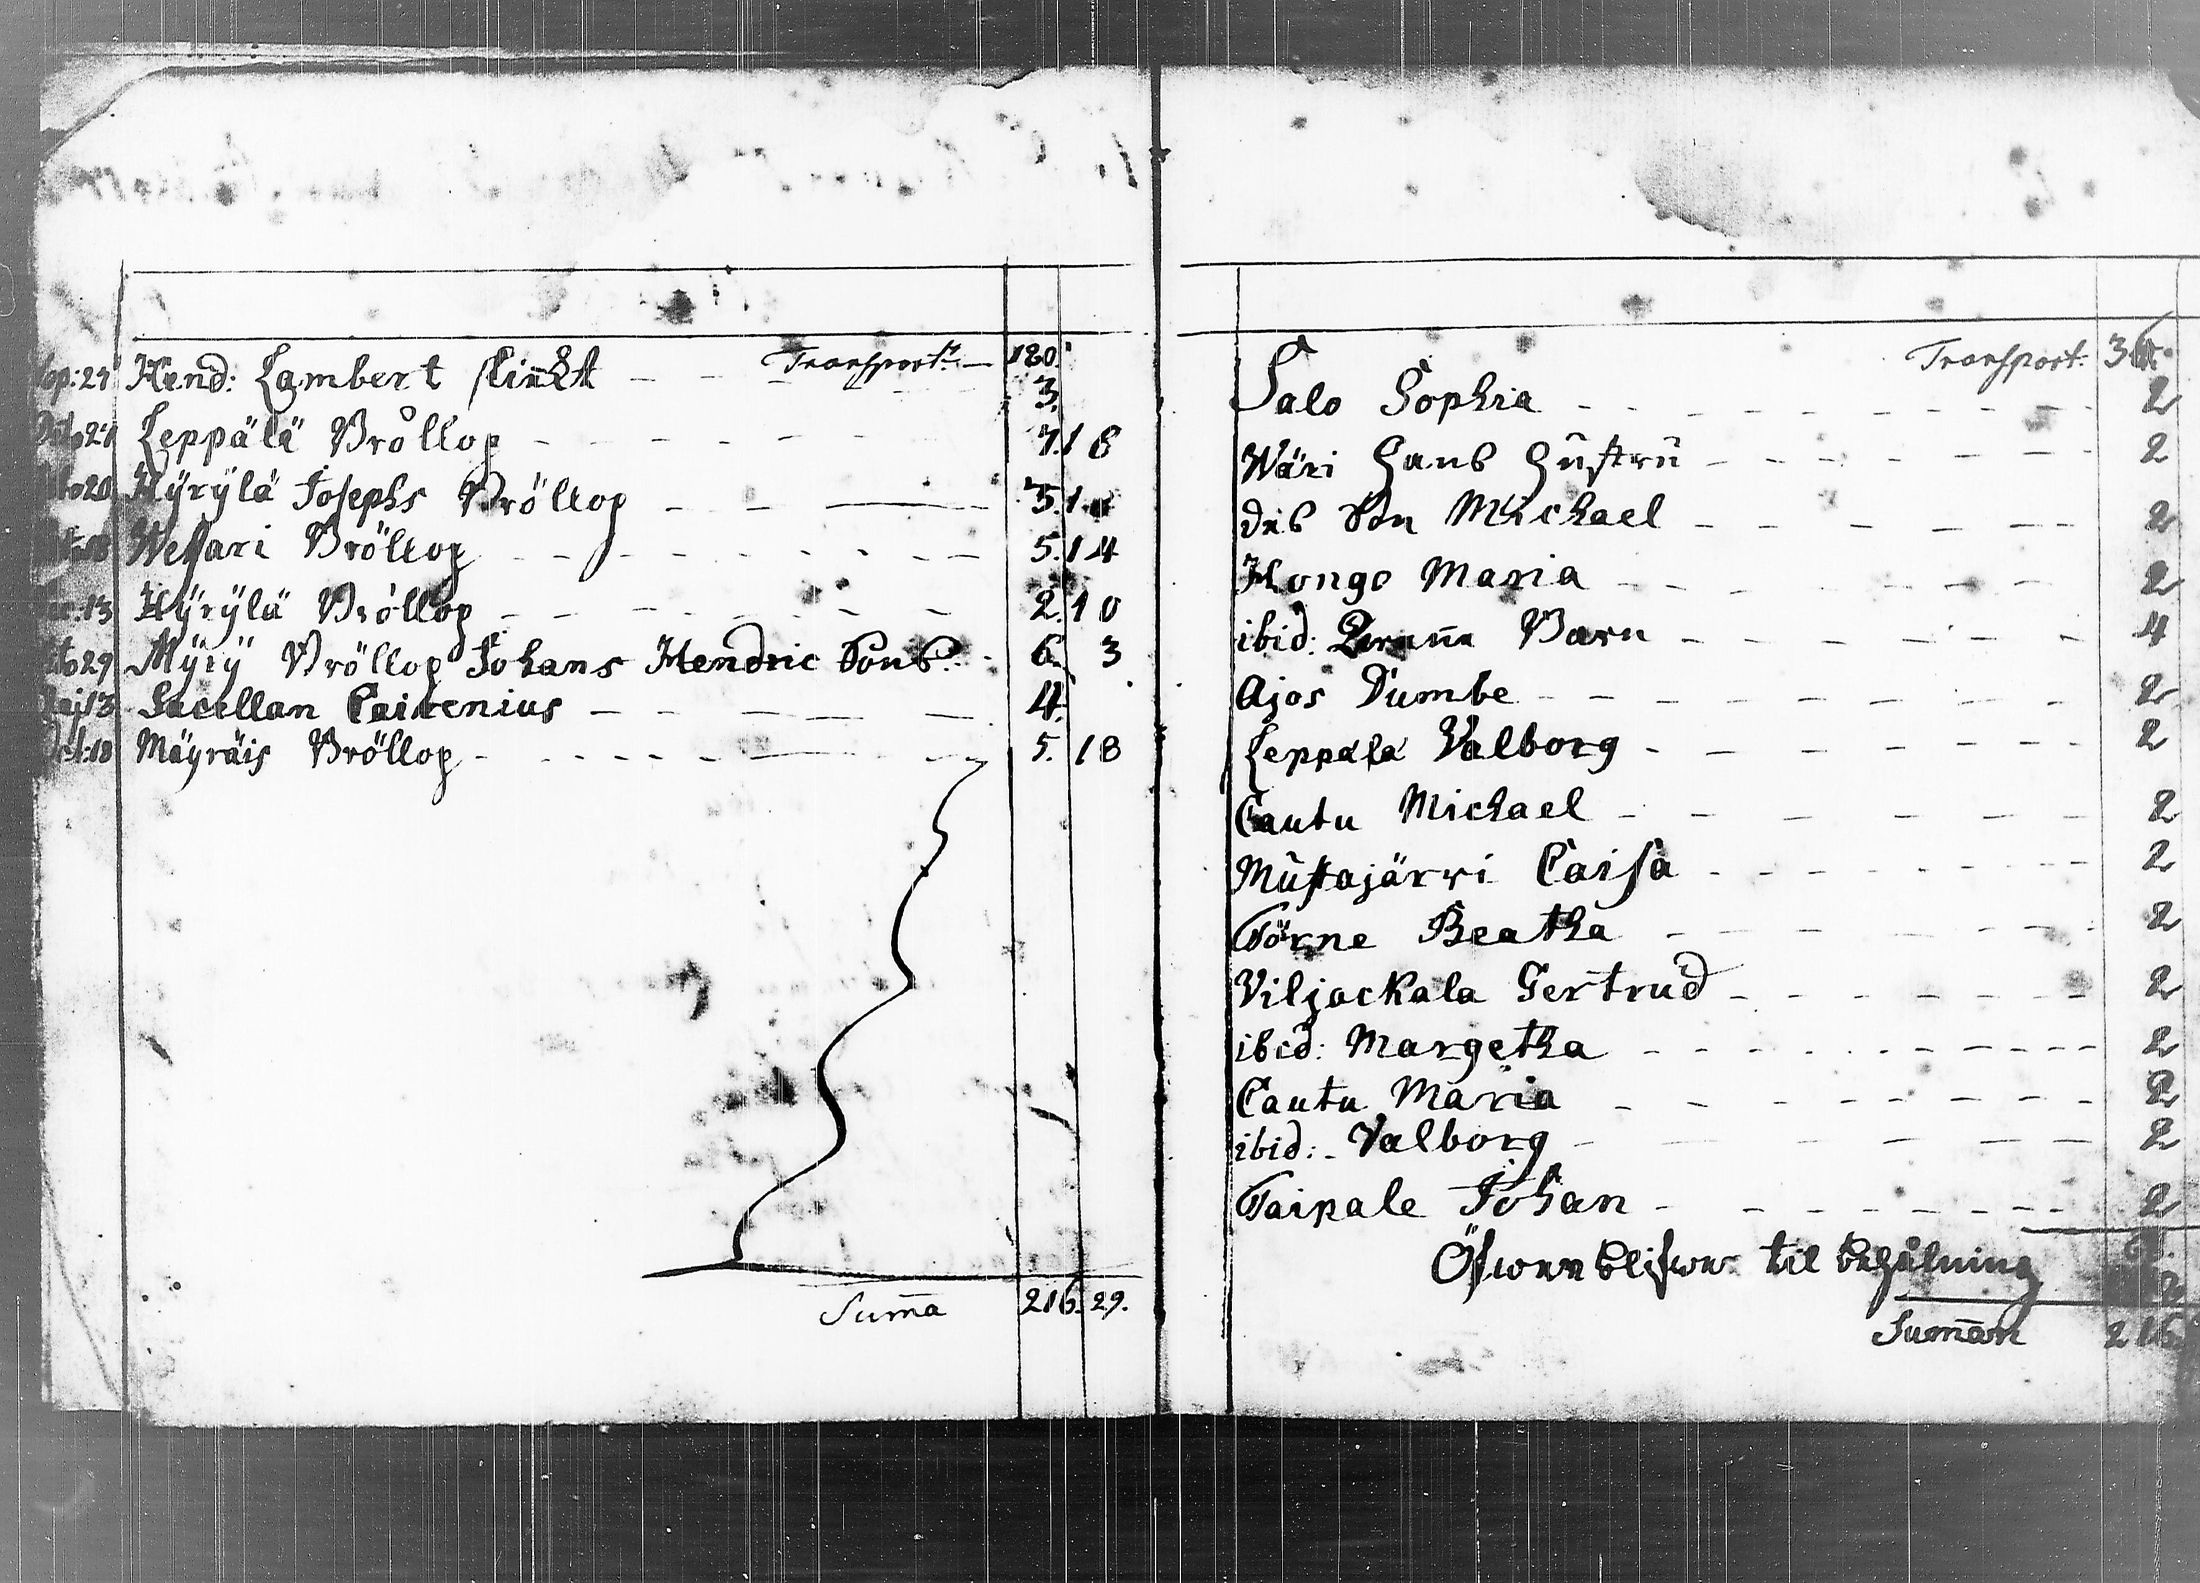 Transport: — 180.
Hend: Lambert skänkt — — 3.
Leppälä Bröllop — — — 7. 18
Hÿrÿlä Josephs Bröllop — — — 3.
Wessari Bröllop — — — 5. 14
13 Hÿrÿlä Bröllop — — — 2. 10
29 Mÿrÿ Bröllop Johans Hendric Sons — 6. 3
13 Sacellan Caitenius — — — 4.
18 Mäyräis Bröllop — — — 5. 18
Suma 216. 29.
Transport:
Salo Sophia — — — 2
Wäri Hans Hustru — — — 2
des Son Michael — — — 2
Hongo Maria — — — 2
ibid: Barn — — — 4
Ajos Dumbe — — — 2
Leppälä Valborg — — — 2
Cautu Michael — — — 2
Mustajärwi Caisa — — — 2
Törne Beatha — — — 2
Viljackala Gertrud — — — 2
ibid: Margetha — — — 2
Cautu Maria — — — 2
ibid: Valborg — — — 2
Taipale Johan — — — 2
Öfwer blifwer til behålning
Suman 216